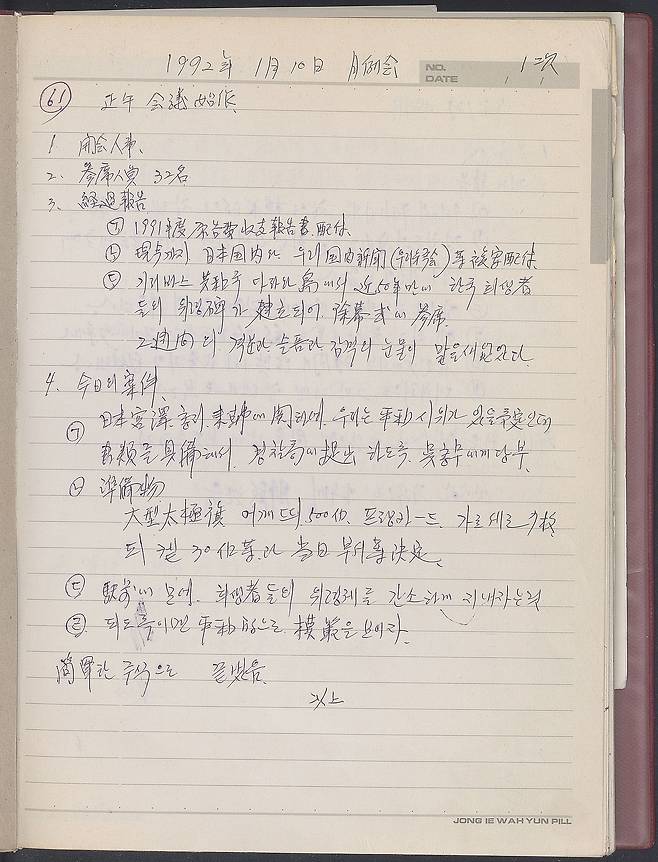 1992年 1月 10日 月例会
NO. 1次
DATE
61 正午 会議 始作
1. 開会人事.
2. 参席人員 32名
3. 経過報告
㉠ 1991年度 原告費 収支報告書 配付.
㉡ 現在까지 日本国内와 우리 国内新聞 配付.
㉢ 기리바스 共和国 타라와 島에서 近50年만에 한국 희생者
들의 위령碑가 建立되어, 除幕式에 参席.
2週間의 격분과 슬픔과 감격의 눈물이 앞을
4. 今日의 案件
㉠ 日本 宮澤 총리 来韓에 関하여, 우리는 平和 시위가 있을 予定인데
書類를 具備해서, 경찰局에 提出 하도록, 총무에게 당부.
㉡ 準備物
大型太極旗 어깨띠 500仆, 프랑카ー드, 가로 세로
피켙 30仆 等과 当日 부서 等 決定.
㉢ 駅前에 모여, 희생者들의 위령제를 간소하게 지내자는 것
㉣ 되도록이면 平和的으로 模範을 보이자.
簡単한 주식으로 끝냈음.
以上
JONG IE WAH YUN PILL